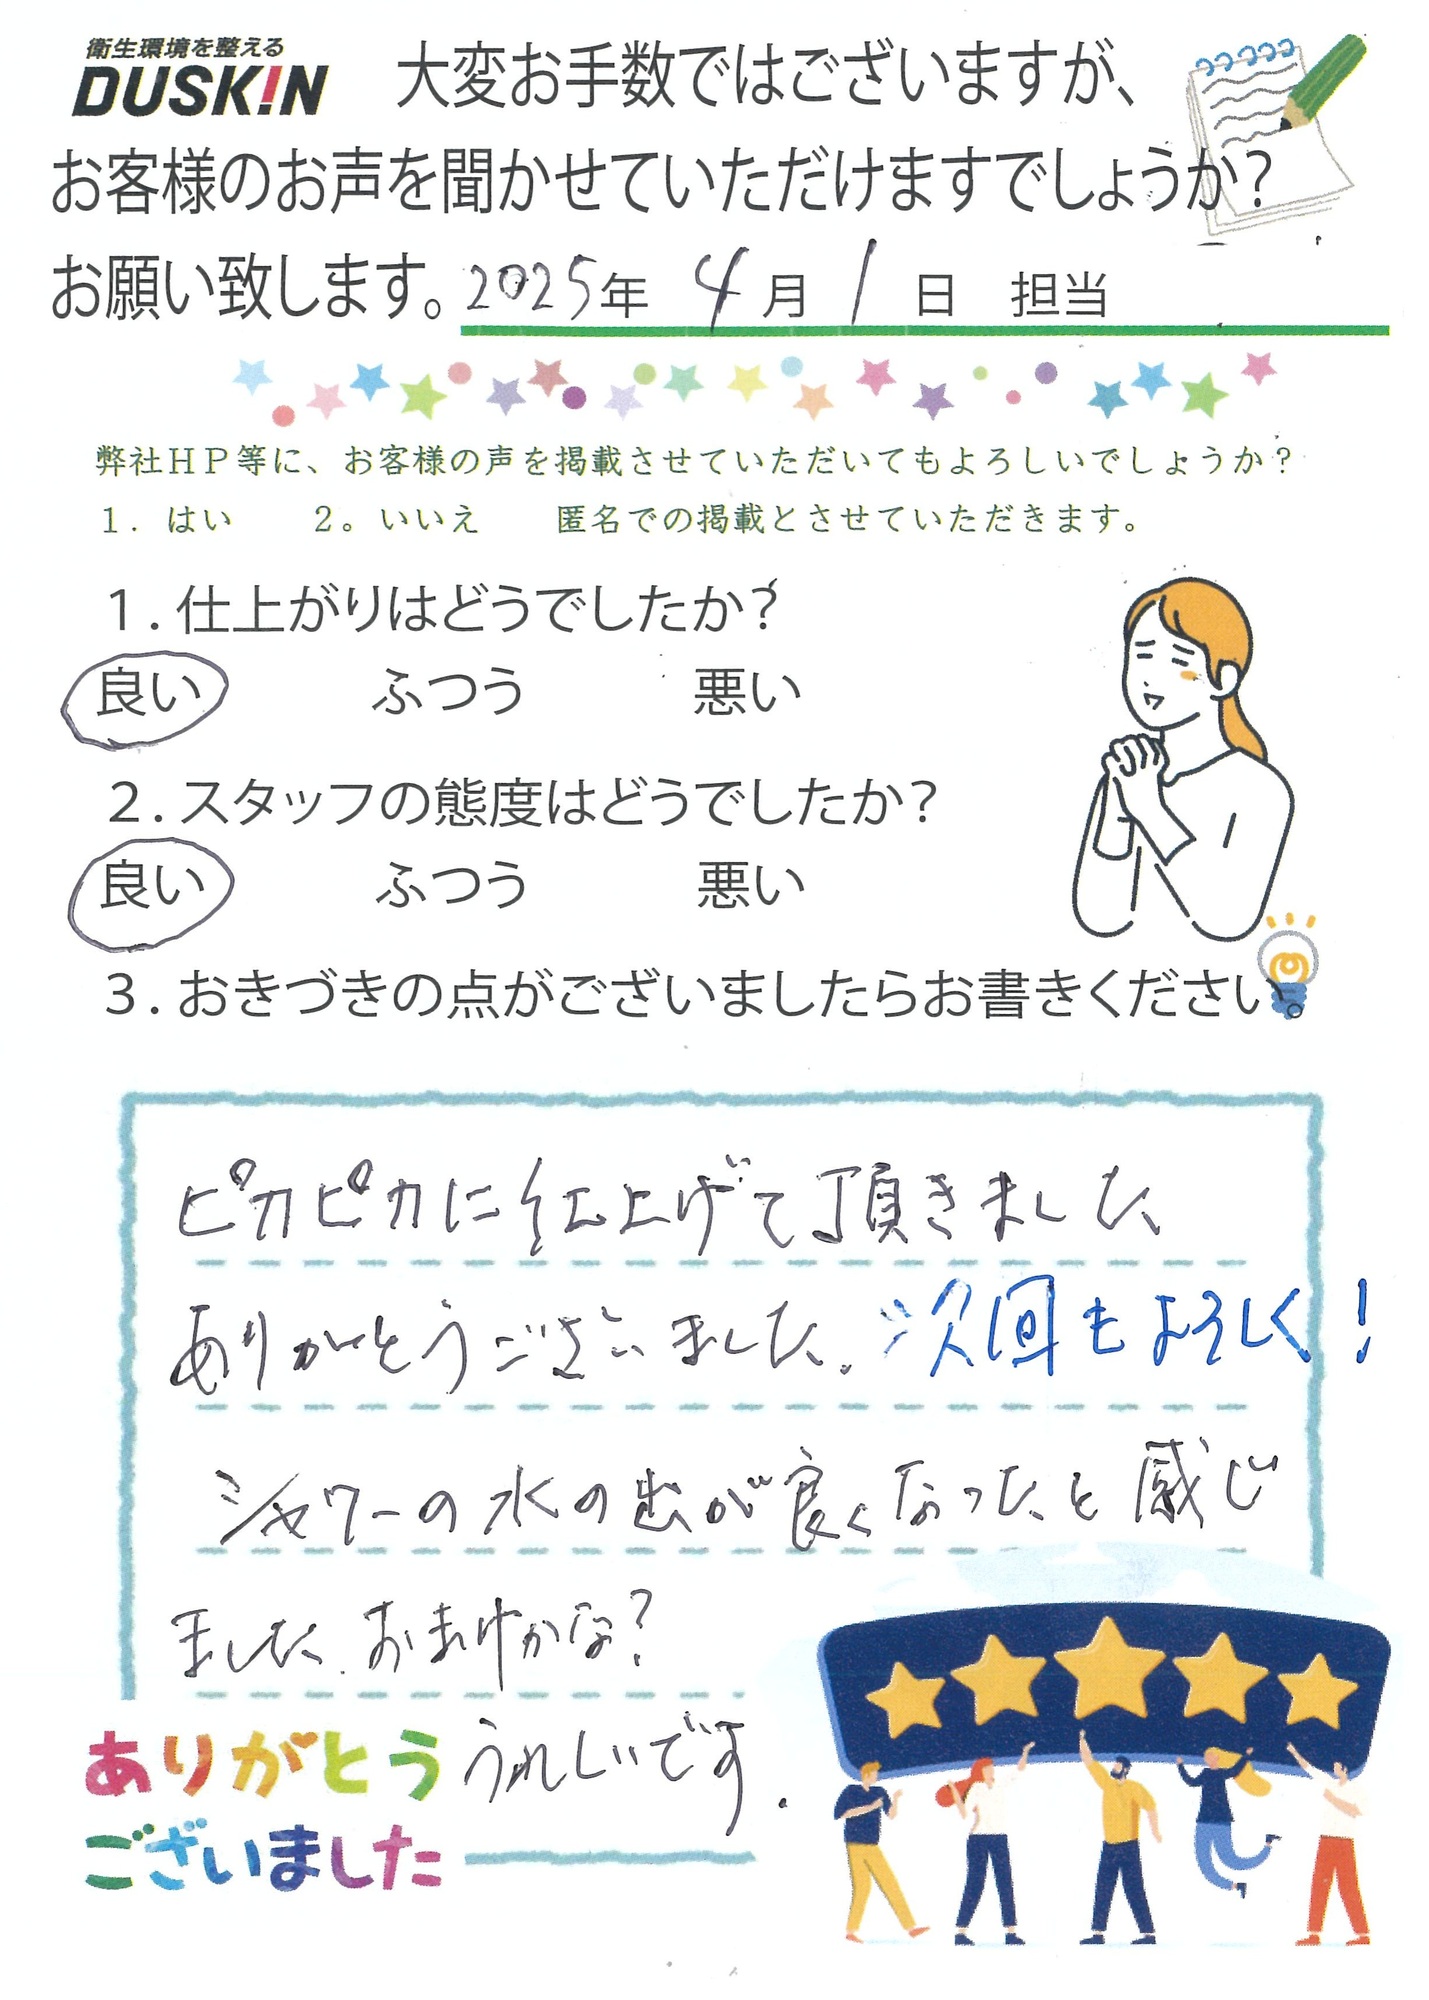 衛生環境を整える
DUSKIN 大変お手数ではございますが、
お客様のお声を聞かせていただけますでしょうか？
お願い致します。2025年 4月 1日 担当
弊社HP等に、お客様の声を掲載させていただいてもよろしいでしょうか？
1. はい 2。いいえ 匿名での掲載とさせていただきます。
1. 仕上がりはどうでしたか？
良い ふつう 悪い
2. スタッフの態度はどうでしたか？
良い ふつう 悪い
3. おきづきの点がございましたらお書きください。
ピカピカに仕上げて頂きました
ありがとうございました。次回もよろしく！
シャワーの水の出が良くなったと感じ
ました。おまけかな？
ありがとう うれしいです.
ございました